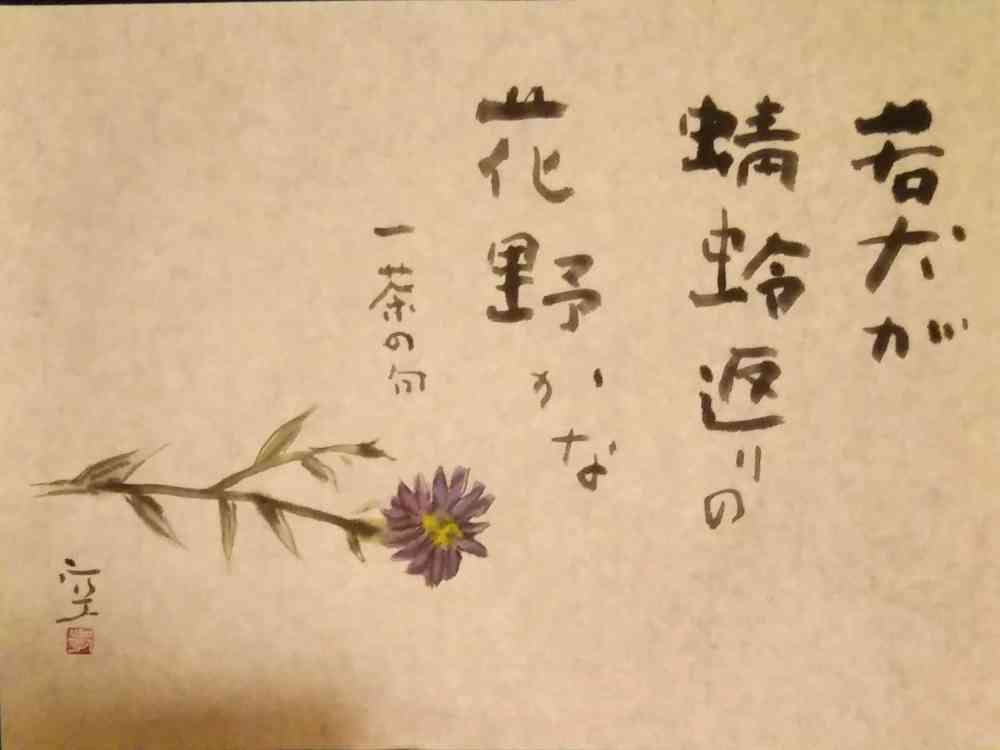 若犬が
蜻蛉返りの
花野かな
一茶の句
空